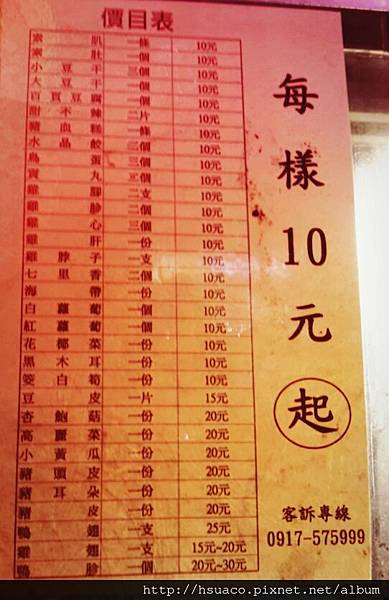 價目表
素 肌 一條 10元
素 肚 一個 10元
小 豆 干 三個 10元
大 豆 干 一個 10元
百 頁 豆 腐 一個 10元
甜 不 辣 二片 10元
豬 血 糕 一條 10元
水 晶 餃 二個 10元
鳥 蛋 三個 10元
貢 丸 二個 10元
雞 腳 二支 10元
雞 胗 二個 10元
雞 心 三個 10元
雞 肝 一份 10元
雞 脖 子 一支 10元
七 里 香 二個 10元
海 帶 一份 10元
白 蘿 蔔 一個 10元
紅 蘿 蔔 一個 10元
花 椰 菜 一份 10元
黑 木 耳 一份 10元
筊 白 筍 一份 10元
豆 皮 一片 15元
杏 鮑 菇 一份 20元
高 麗 菜 一份 20元
小 黃 瓜 一份 20元
豬 頭 皮 一份 20元
豬 耳 朵 一份 20元
豬 皮 一份 20元
鴨 翅 一支 25元
雞 翅 一支 15元~20元
鴨 胗 一個 20元~30元
每樣10元起
客訴專線
0917-575999
http://hsuaco.pixnet.net/album